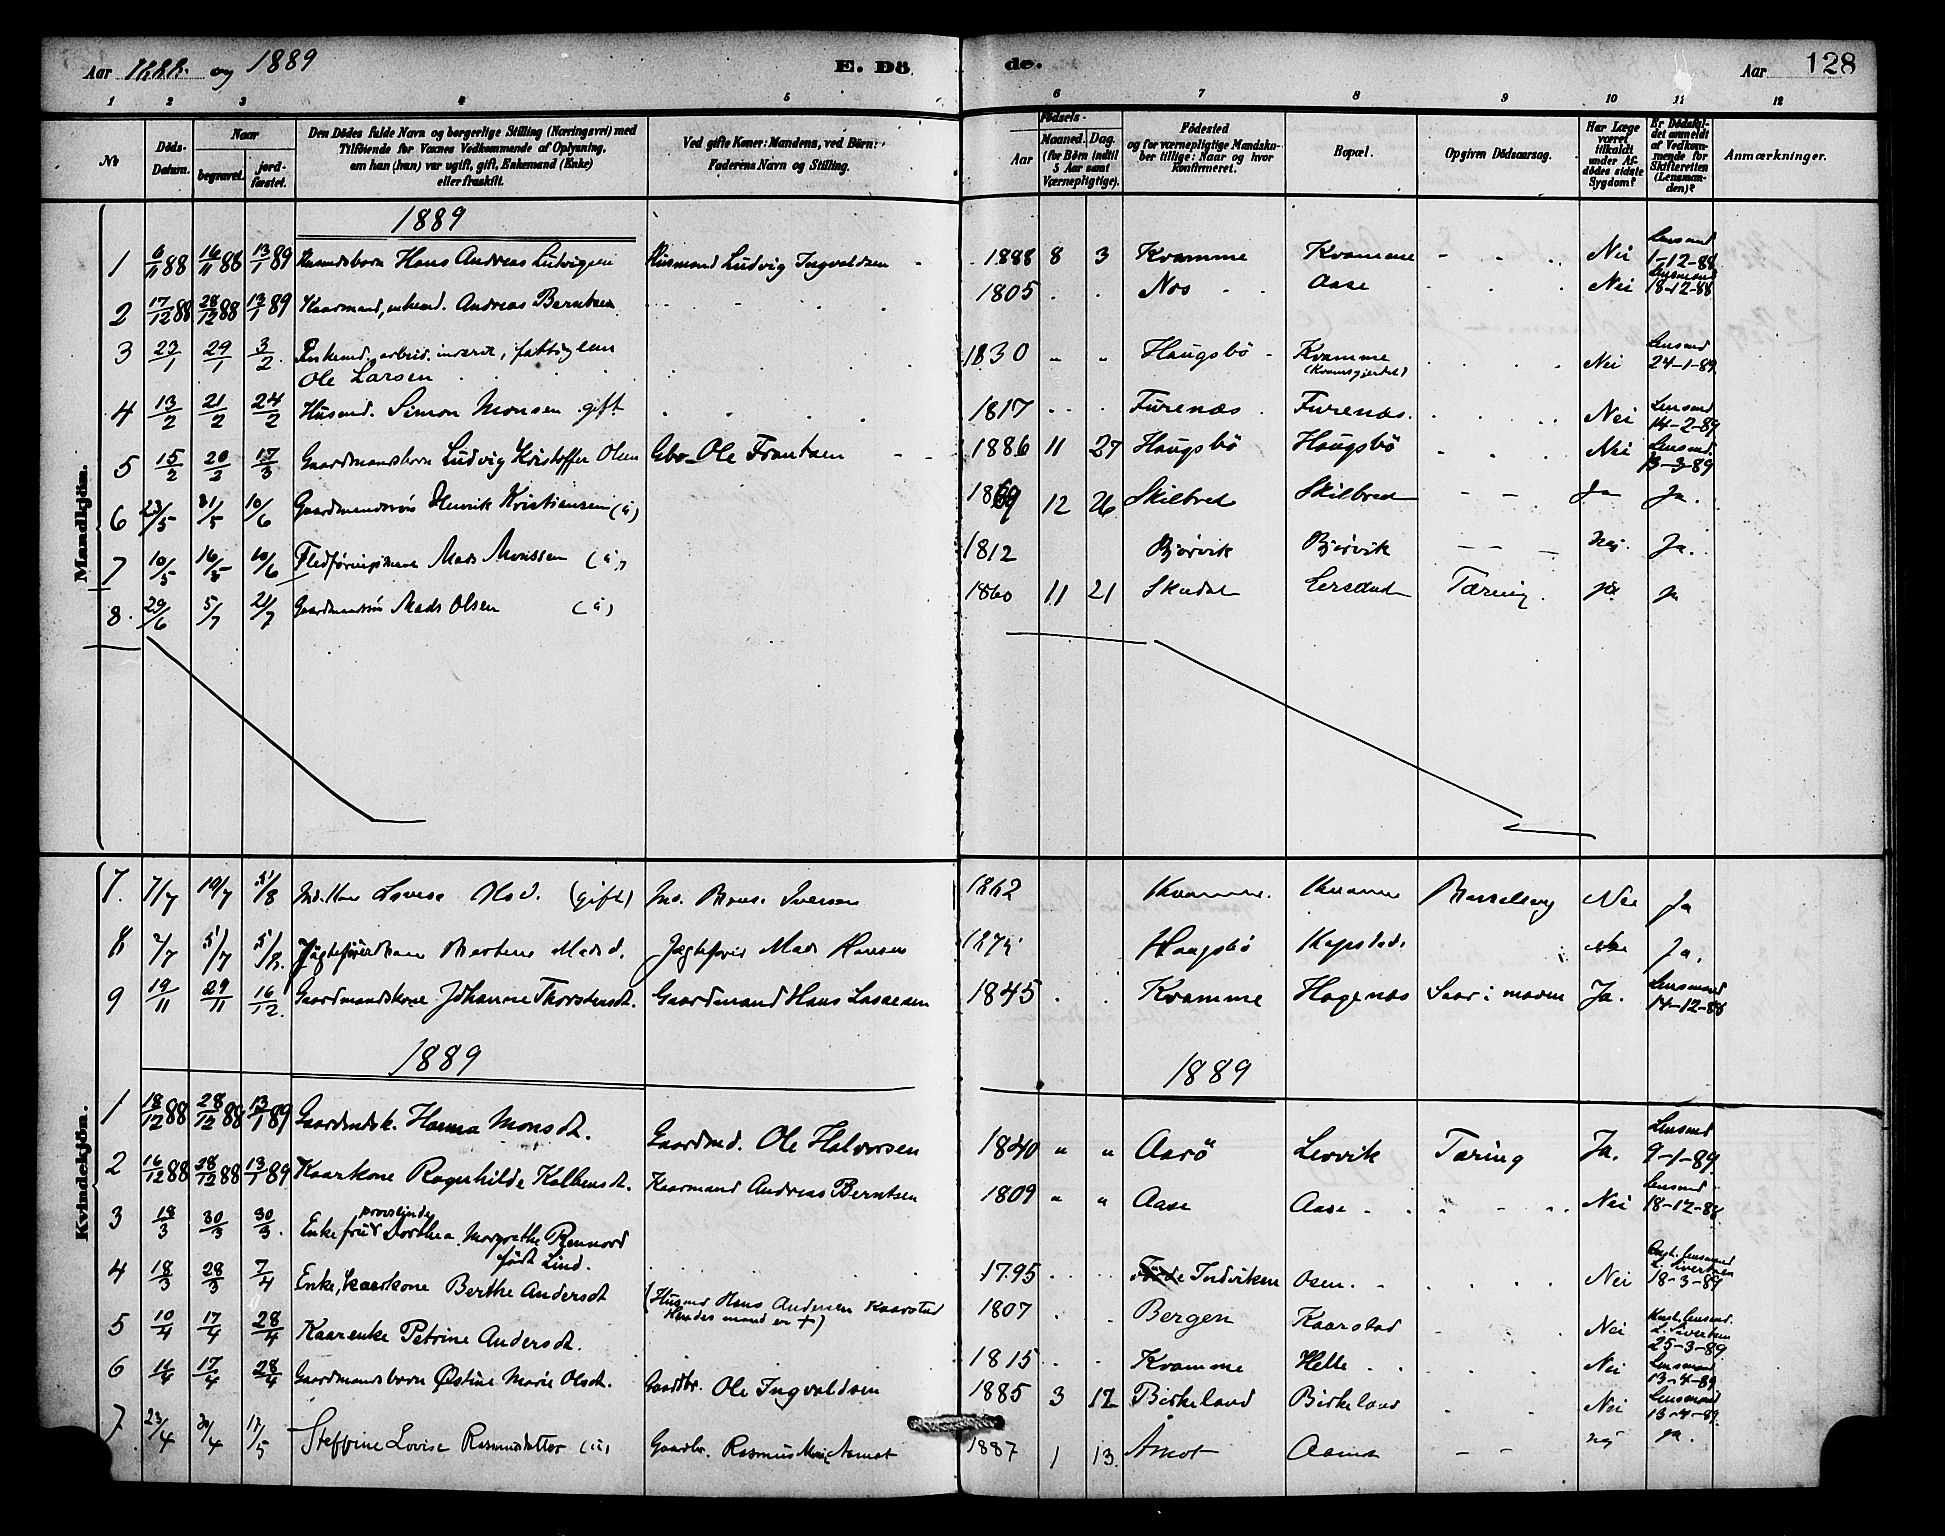 Aar 1888 og 1889
E. Döde.
Aar 128
1 2 3 4 5 6 7 8 9 10 11 12
No
Döds-Datum.
Naar
begravet.
jord-fæstet.
Den Dödes fulde Navn og borgerlige Stilling (Næringsvei) med
Tilföiende for Voxnes Vedkommende af Oplysning,
om han (hun) var ugift, gift, Enkemand (Enke)
eller fraskilt.
Ved gifte Koner: Mandens, ved Börn:
Faderens Navn og Stilling.
Födsels-
Aar
Maaned. Dag.
(for Börn indtil
5 Aar samt
Værnepligtige).
Födested
og for værnepligtige Mandska-
ber tillige: Naar og hvor
konfirmeret.
Bopæl.
Opgiven Dödsaarsag.
Har Læge
været
tilkaldt
under Af-
dödes sidste
Sygdom?
Er Dödsfal-
det anmeldt
af Vedkom-
mende for
Skifteretten
(Lensman-
den)?
Anmærkninger.
Mandkjön.
1889
1 6/11 88 16/11 88 13/1 89 Husmandsbarn Hans Andreas Ludvigsen Husmand Ludvig Ingvaldsen 1888 8 3 Kvamme Kvamme Nei Lensmd 1-12-88
2 17/12 88 28/12 88 13/1 89 Kaarmand, enkemd. Andreas Berntsen 1805 Nos Aase Nei Lensmand 18-12-88
3 23/1 29/1 3/2 Enkemd. arbeid. inderst, fattiglem
Ole Larsen 1830 " " Haugsbö Kvamme (Kvamsgjerdet) Nei Lensmd 24-1-89
4 13/2 21/2 24/2 Husmd. Simon Monsen gift 1817 Furenæs Furenæs Nei Lensmd 14-2-89
5 15/2 20/2 17/3 Gaardmandsbarn Ludvig Kristoffer Olsen Gbr. Ole Frantsen 1886 11 27 Haugsbö Haugsbö Nei Lensmd. 13-3-89
6 23/5 31/5 10/6 Gaardmandssön Henrik Kristiansen (u) 1869 12 26 Skilbred Skilbred Ja Ja.
7 10/5 16/5 10/6 Flodföringsmand Mads Monssen (u) 1812 Bjørvik Bjørvik nej Ja.
8. 29/6 5/7 21/7 Gaardmandssön Mads Olsen (u) 1860 11 21 Skudal Tæring ja ja
Kvindekjön.
7. 7/7 19/7 Lovise Olsd. (gift) Iversen 1862 Kvamme Kvamme Barselseng Nei Ja
8 2/7 5/7 5/8 Jægteförerkone Madsd. Jægteförer Mads Hansen Haugsbö Kapstad Ja.
9 19/11 29/11 16/12 Gaardmandskone Johanne Thorstensdt. Gaardmand Hans Lasaesen 1845 Kvamme Hagenæs Saar i maven Ja. Lensmand 14-12-88
1889 1889
1 18/12 88 28/12 88 13/1 89 Gaardmdsk. Hanna Monsdt. Gaardmd. Ole Halvorsen 1840 " " Aarö Lervik Tæring Ja. Lensmd 9-1-89
2 16/12 88 28/12 88 13/1 89 Kaarkone Ragnhilde Kolbensdt. Kaarmand Andreas Berntsen 1809 " " Aase Aase Nei Lensmd 18-12-88
3 18/3 30/3 30/3. Enkefru Dorthea Margrethe Rennord
födt Lind. 1795 Indviken Osen Nei 18-3-89
4 18/3 28/3 7/4 Enke, kaarkone Berthe Andersdt (Husmd Hans Andersen Kaarstad
Hendes mand er +) 1807 Bergen Kaarstad Nei L. Sivertsen 25-3-89
5 10/4 17/4 28/4 Kaarenke Petrine Andersdt. 1815 Kvamme Helle Nei Lensmand 13-4-89
6 11/4 17/4 28/4 Gaardmandsbarn Østine Marie Olsdt. Gaardbr. Ole Ingvaldsen 1885 3 12 Birkeland Birkeland Nei Lensmand 13-4-89
7 23/4 30/4 17/5 Steffine Lovise Rasmusdatter (u) Gaardbr. Rasmus Aamot 1887 1 13. Åmot Aamot nej ja.